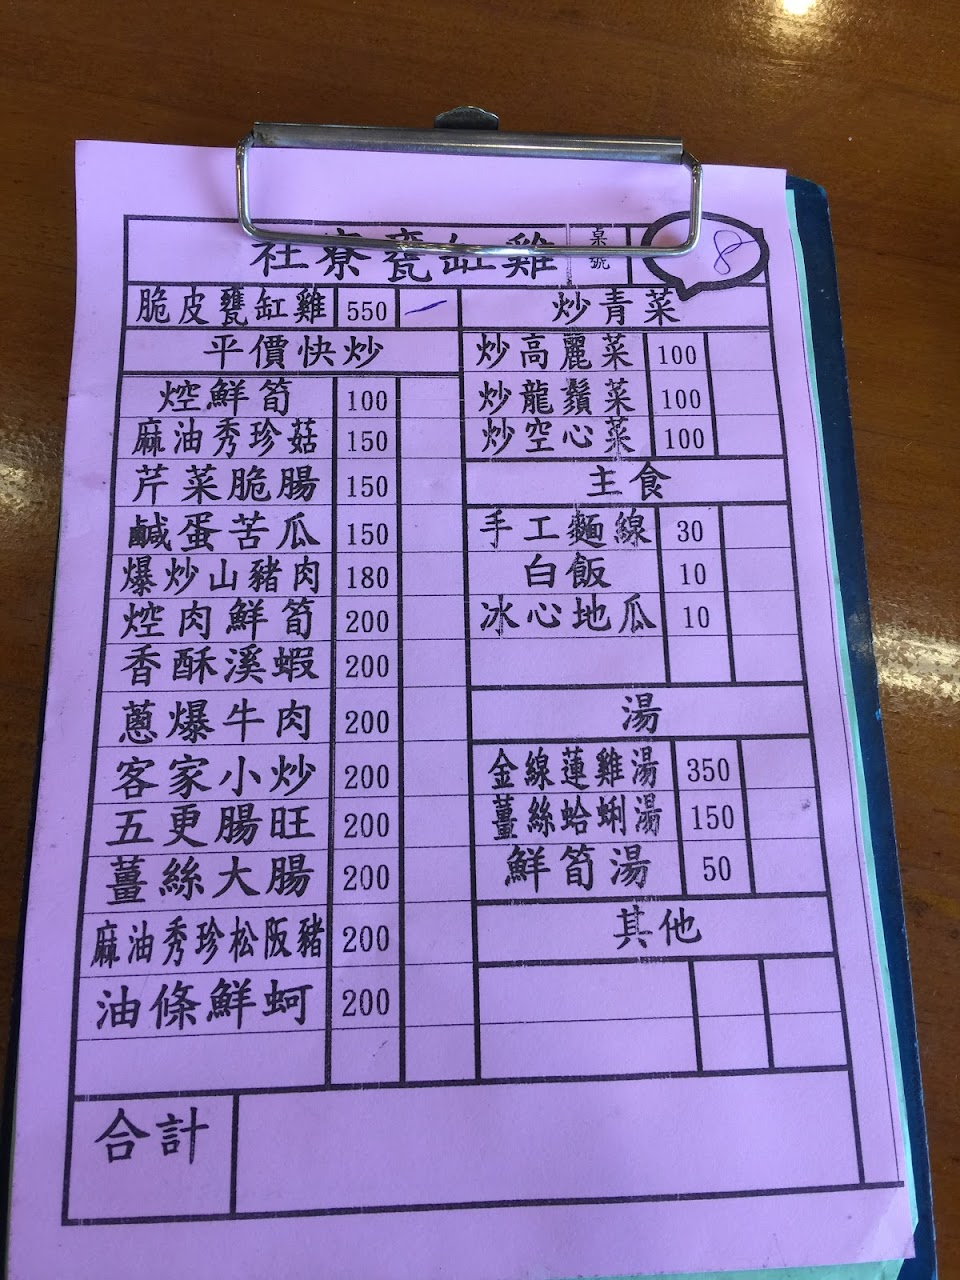 社寮甕缸雞 桌號 8
脆皮甕缸雞 550 一
平價快炒
焢鮮筍 100
麻油秀珍菇 150
芹菜脆腸 150
鹹蛋苦瓜 150
爆炒山豬肉 180
焢肉鮮筍 200
香酥溪蝦 200
蔥爆牛肉 200
客家小炒 200
五更腸旺 200
薑絲大腸 200
麻油秀珍松阪豬 200
油條鮮蚵 200
炒青菜
炒高麗菜 100
炒龍鬚菜 100
炒空心菜 100
主食
手工麵線 30
白飯 10
冰心地瓜 10
湯
金線蓮雞湯 350
薑絲蛤蜊湯 150
鮮筍湯 50
其他
合計